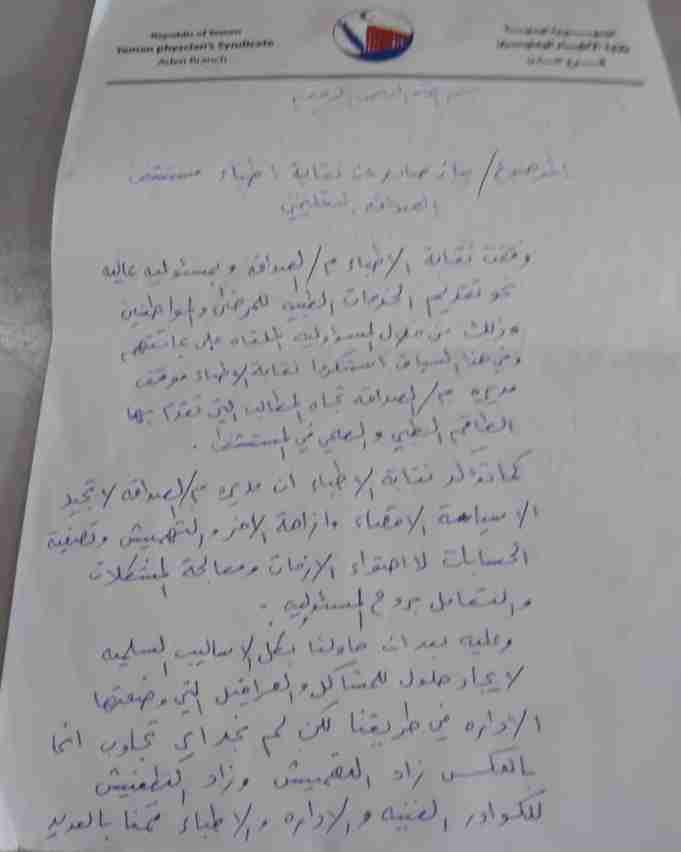 Republic of Yemen
Yemen physician's Syndicate
Aden Branch
الجمهورية اليمنية
نقابة الأطباء اليمنيين
بسم الله الرحمن الرحيم
الموضوع / بيان صادر عن نقابة اطباء مستشفى
الصداقه التعليمي
وقفت نقابة الاطباء م/الصداقه وبمسئوليه عاليه
نحو تقديم الخدمات الطبيه للمرضى والمواطنين
وذلك من خلال المسؤولية الملقاه على عاتقهم
وفي هذا السياق استنكرت نقابة الاطباء موقف
مديره م/الصداقه تجاه المطالب التي تقدم بها
الطاقم الطبي والصحي في المستشفى .
كما تؤكد نقابة الاطباء ان مديره م/الصداقه لا تجيد
الا سياسة الاقصاء وازاحة الاخر والتهميش وتصفية
الحسابات لا احتواء الازمات ومعالجة المشكلات
والتعامل بروح المسئوليه .
وعليه بعد ان حاولنا بكل الاساليب السلميه
لايجاد حلول للمشاكل والعراقيل التي وضعتها
الاداره في طريقنا لكن لم نجد اي تجاوب انما
بالعكس زاد التهميش وزاد التطفيش
للكوادر الفنيه والاداره والاطباء قمنا بالعديد